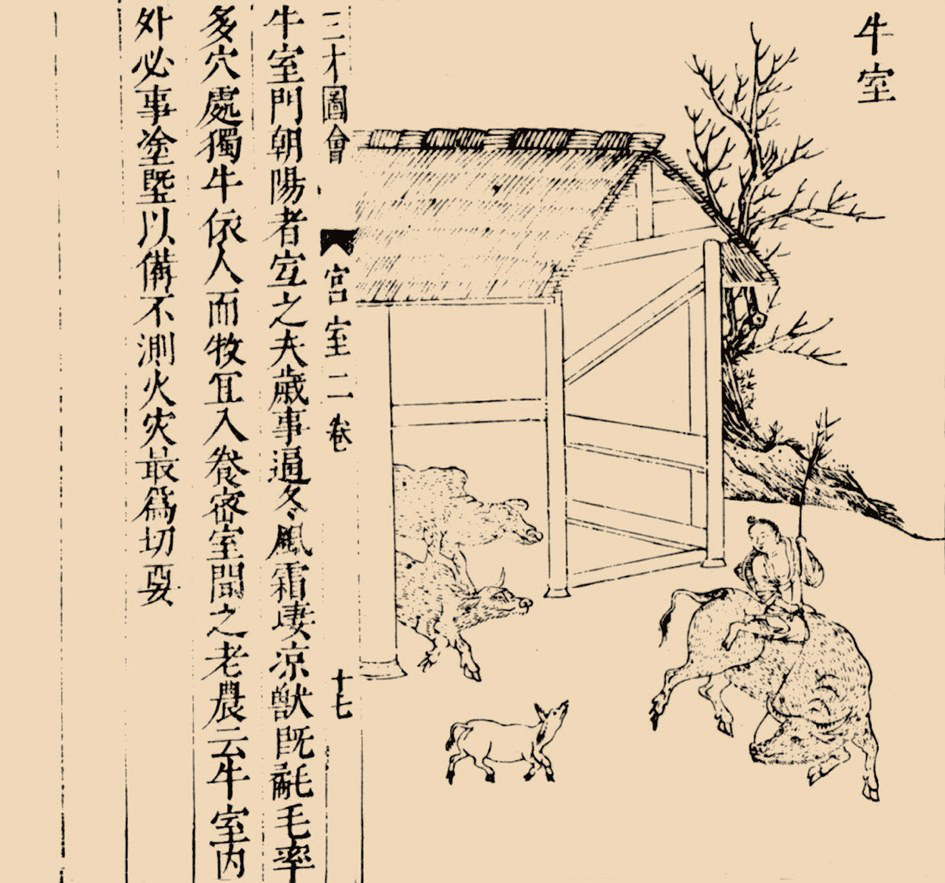 牛室
三才圖會 宮室二卷 十七
牛室門朝陽者宜之夫歲事逼冬風霜凄凉獸既氄毛率
多穴處獨牛依人而牧宜入養密室聞之老農云牛室內
外必事塗塈以備不測火灾最爲切要